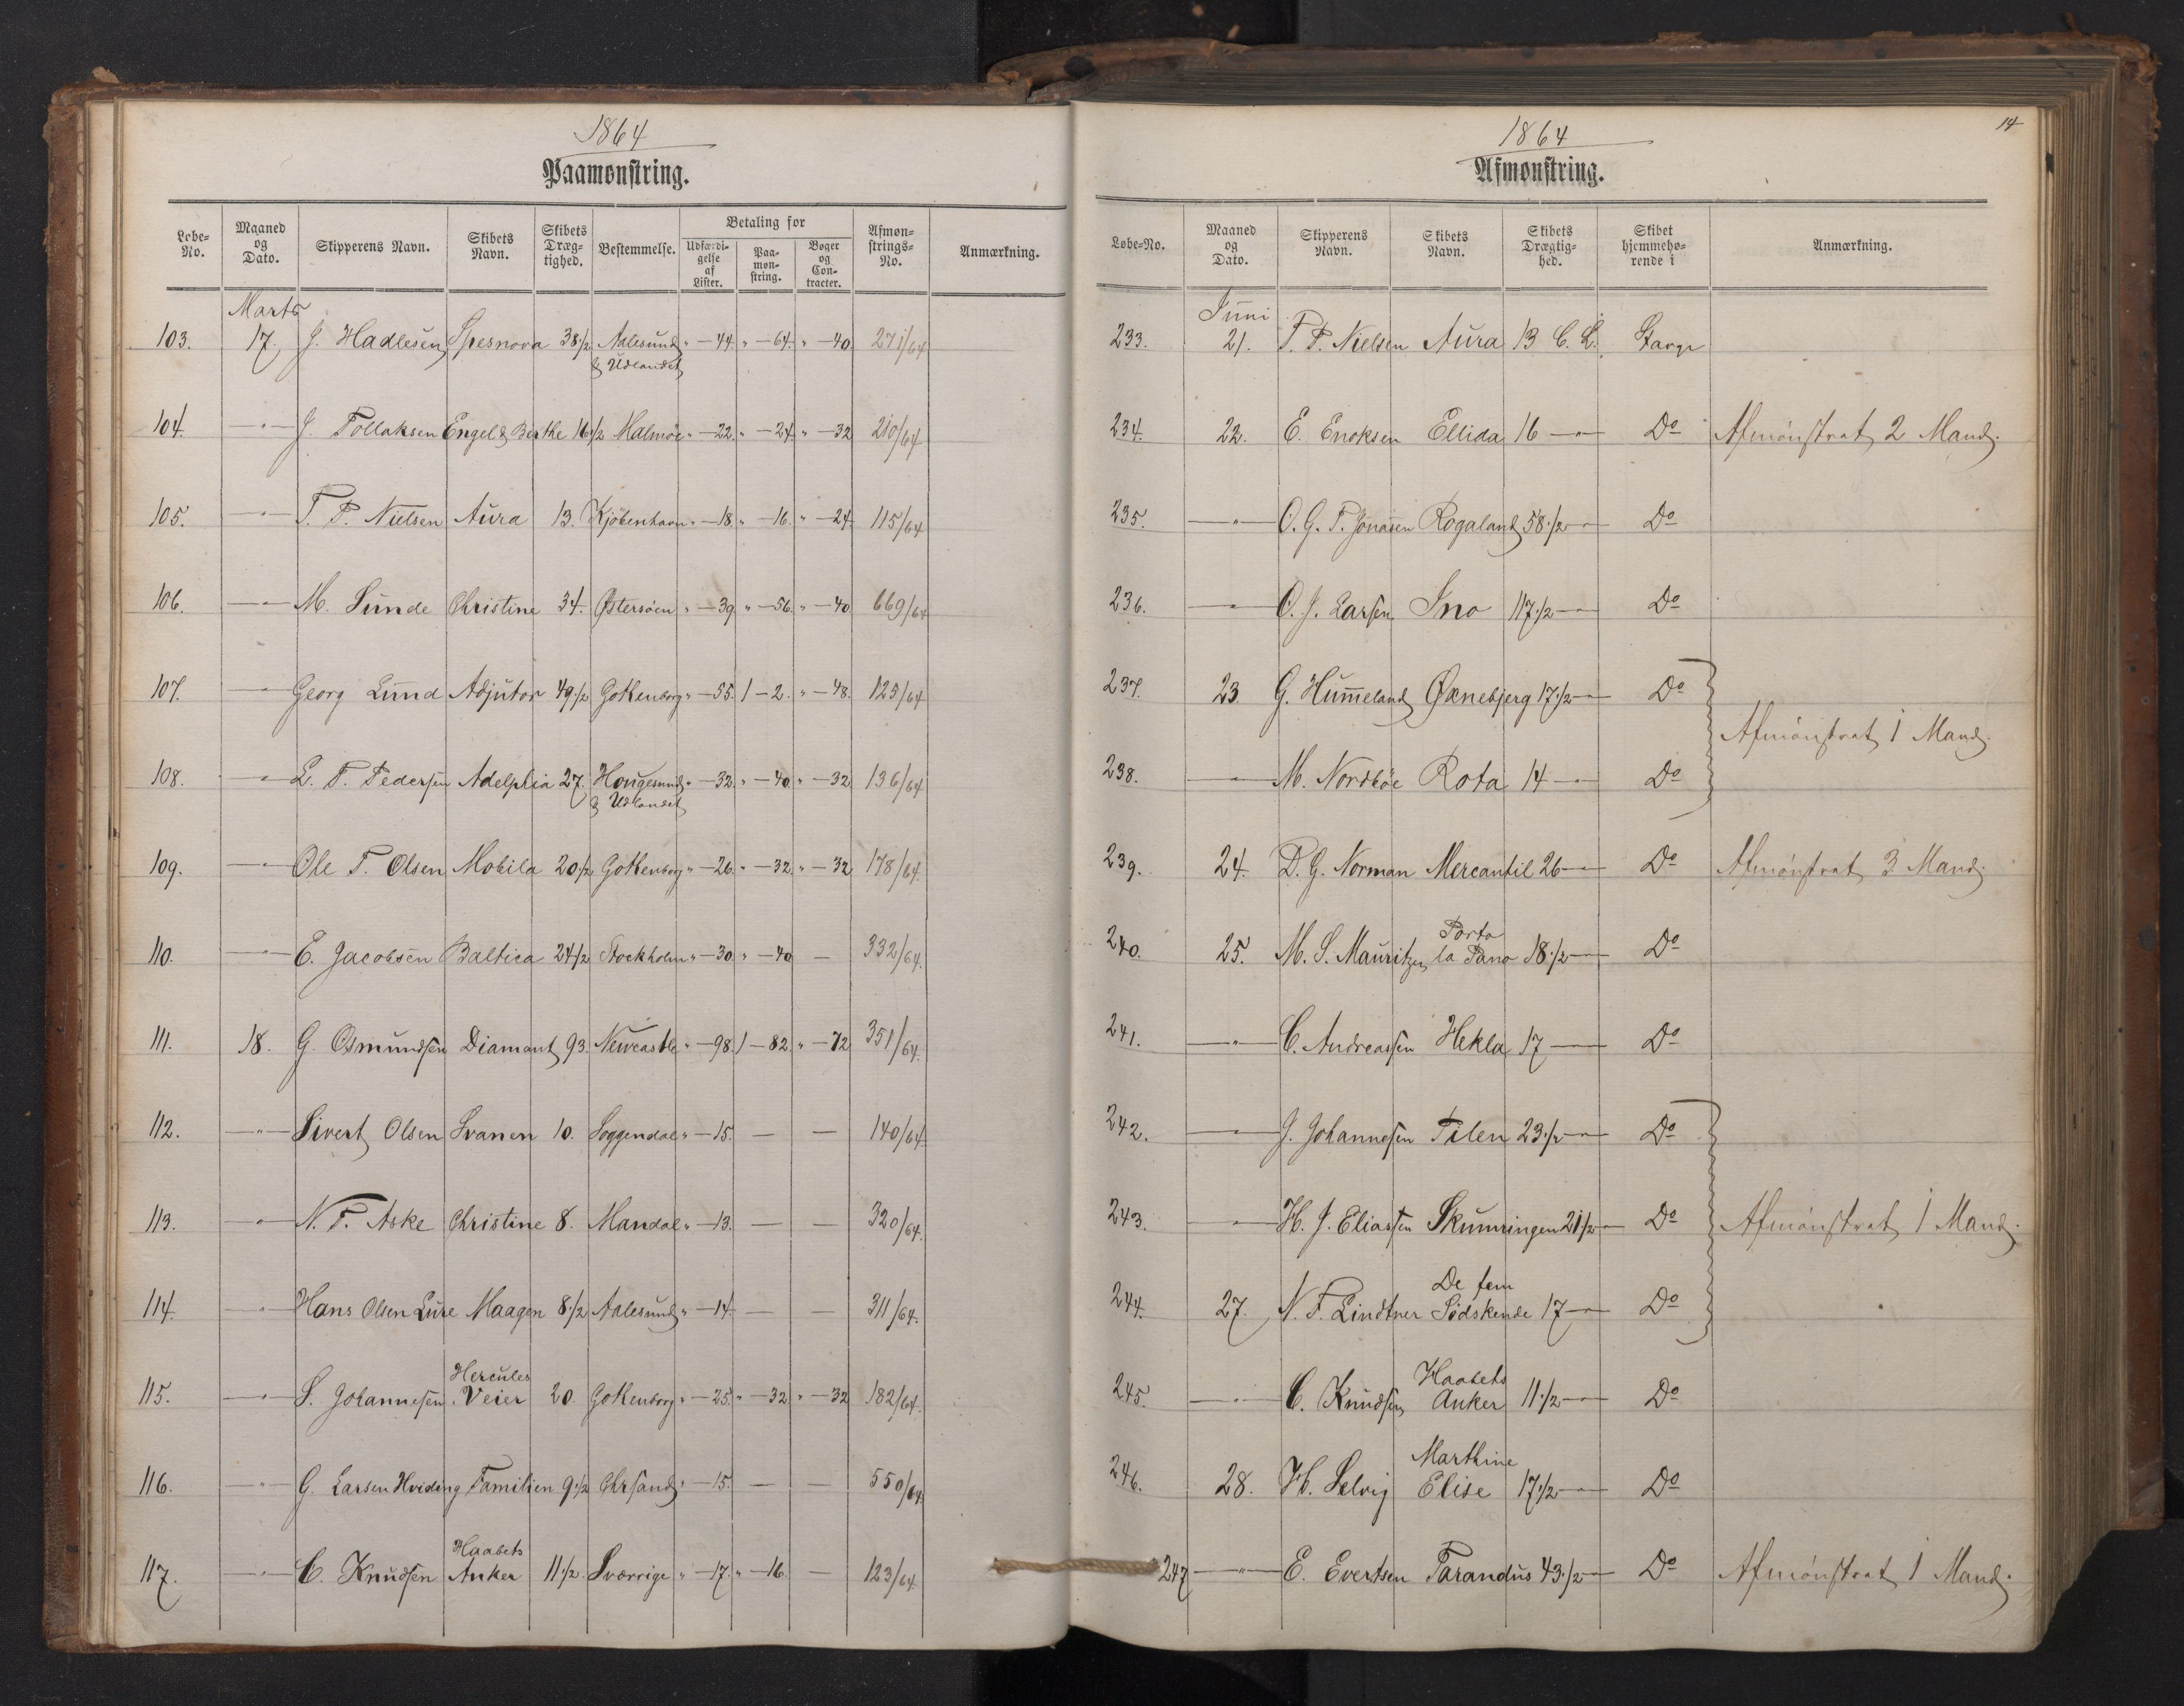 1864
Paamønstring.
Løbe-No. | Maaned og Dato. | Skipperens Navn. | Skibets Navn. | Skibets Dræg-tighed. | Bestemmelse. | Betaling for | Udfærdi-gelse af Lister. | Paa-møn-string. | Bøger og Con-tracter. | Afmøn-strings-No. | Anmærkning.
Marts
103. 17. J. Hadlesen Spesnova 38 1/2 Aalesund & Udlandet " — 44. " — 64. " — 40. 271/64
104. — " — J. Tollaksen Engel & Berthe 16 1/2 Malmøe " — 22. " — 24. " — 32 210/64
105. — " — T. P. Nielsen Aura 13. Kjöbenhavn " — 18. " — 16. " — 24. 115/64
106. — " — M. Sunde Christine 34. Østersøen " — 39. " — 56. " — 40 669/64
107. — " — Georg Lund Adjutor 49 1/2 Gothenborg " — 55. 1 — 2. " — 48. 125/64
108. — " — L. T. Pedersen Adelphia 27. Hougesund & Udlandet " — 32. " — 40. " — 32. 136/64
109. — " — Ole T. Olsen Mobila 20 1/2 Gothenborg " — 26. " — 32. " — 32 178/64.
110. — " — E. Jacobsen Baltica 24 1/2 Stockholm " — 30. " — 40 — 332/64.
111. 18. G. Osmundsen Diamant 93. Newcastle " — 98. 1 — 82. " — 72 351/64.
112. — " — Sivert Olsen Svanen 10. Soggendal " — 15. — — 140/64.
113. — " — N. T. Aske Christine 8. Mandal " — 13. — — 320/64.
114. — " — Hans Olsen Lure Maagen 8 1/2 Aalesund " — 14. — — 311/64.
115. — " — S. Johannesen Hercules Veier 20. Gothenborg " — 25. " — 32 " — 32 182/64.
116. — " — G. Larsen Hviding Familien 9 1/2 Chrsand " — 15. — — 550/64.
117. — " — C. Knudsen Haabets Anker 11 1/2. Sverrige " — 17. " — 16. — 123/64.
14
1864
Afmønstring.
Løbe-No. | Maaned og Dato. | Skipperens Navn. | Skibets Navn. | Skibets Drægtig-hed. | Skibet hjemmehø-rende i | Anmærkning.
Juni
233. 21. T. P. Nielsen Aura 13 C. L. Stavgr
234. 22. E. Enoksen Ellida 16 — " — Do Afmønstrat 2 Mand.
235. — " — O. G. T. Jonasen Rogaland 58 1/2 — " — Do
236. — " — O. J. Larsen Ino 117 1/2 — " — Do
237. 23. G. Hummeland Øxnebjerg 17 1/2 — " — Do
Afmønstrat 1 Mand.
238. — " — M. Nordböe Rota 14 — " — Do
239. 24. D. G. Norman Mercantil 26 — " — Do Afmønstrat 3 Mand.
240. 25. M. S. Mauritzen Porto la Pano 18 1/2 — " — Do
241. — " — C. Andreassen Hekla 17 — " — Do
242. — " — J. Johannesen Pilen 23 1/2 — " — Do
243. — " — H. J. Eliassen Skumringen 21 1/2 — Do Afmønstrat 1 Mand.
244. 27. N. F. Lindtner De fem Södskende 17 — " — Do
245. — " — C. Knudsen Haabets Anker 11 1/2 — " — Do
246. 28. H. Selvig Marthine Elise 17 1/2 — " — Do
247 — " — E. Evertsen Tarandus 43 1/2 — Do Afmønstrat 1 Mand.